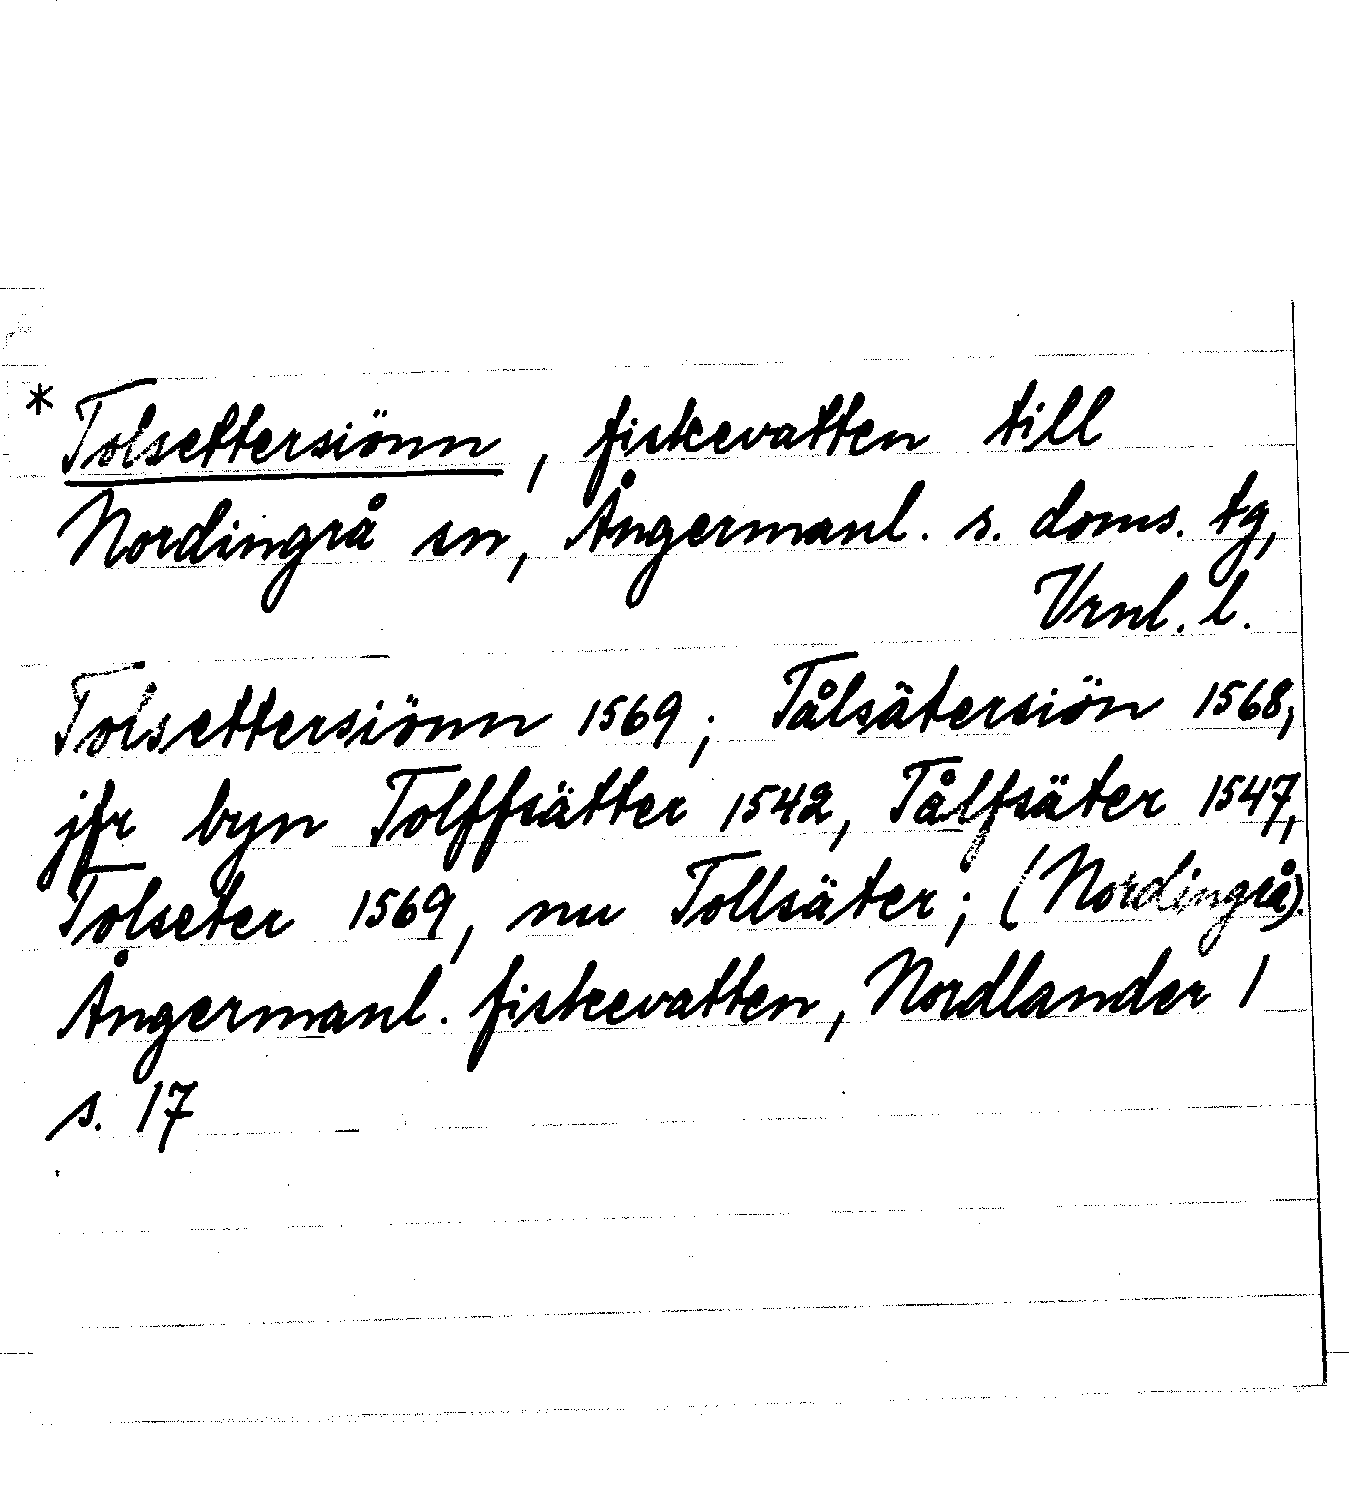 * Tolsettersiönn, fiskevatten till
Nordingrå sn, Ångermanl. s. doms. tg,
Vrnl. l.
Tolsettersiönn 1569; Tålsätersiön 1568,
jfr byn Tolffsätter 1542, Tålfsäter 1547,
Tolseter 1569, nu Tollsäter; (Nordingrå).
Ångermanl. fiskevatten, Nordlander 1
s. 17